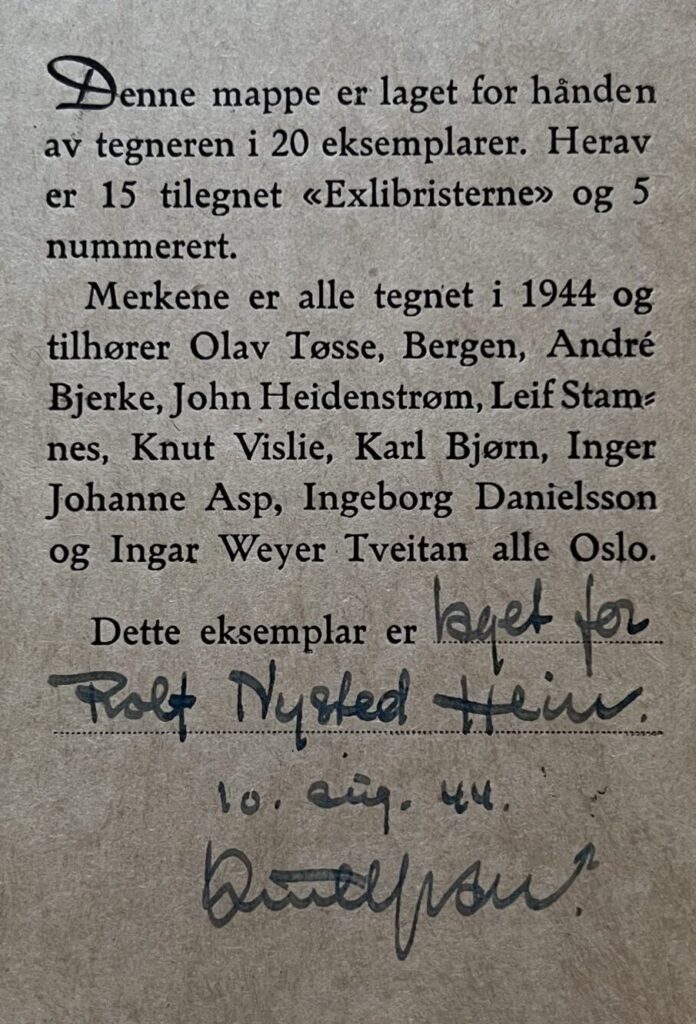 Denne mappe er laget for hånden
av tegneren i 20 eksemplarer. Herav
er 15 tilegnet «Exlibristerne» og 5
nummerert.
Merkene er alle tegnet i 1944 og
tilhører Olav Tøsse, Bergen, André
Bjerke, John Heidenstrøm, Leif Stam-
nes, Knut Vislie, Karl Bjørn, Inger
Johanne Asp, Ingeborg Danielsson
og Ingar Weyer Tveitan alle Oslo.
Dette eksemplar er laget for
Rolf Nysted Hein.
10. aug. 44.